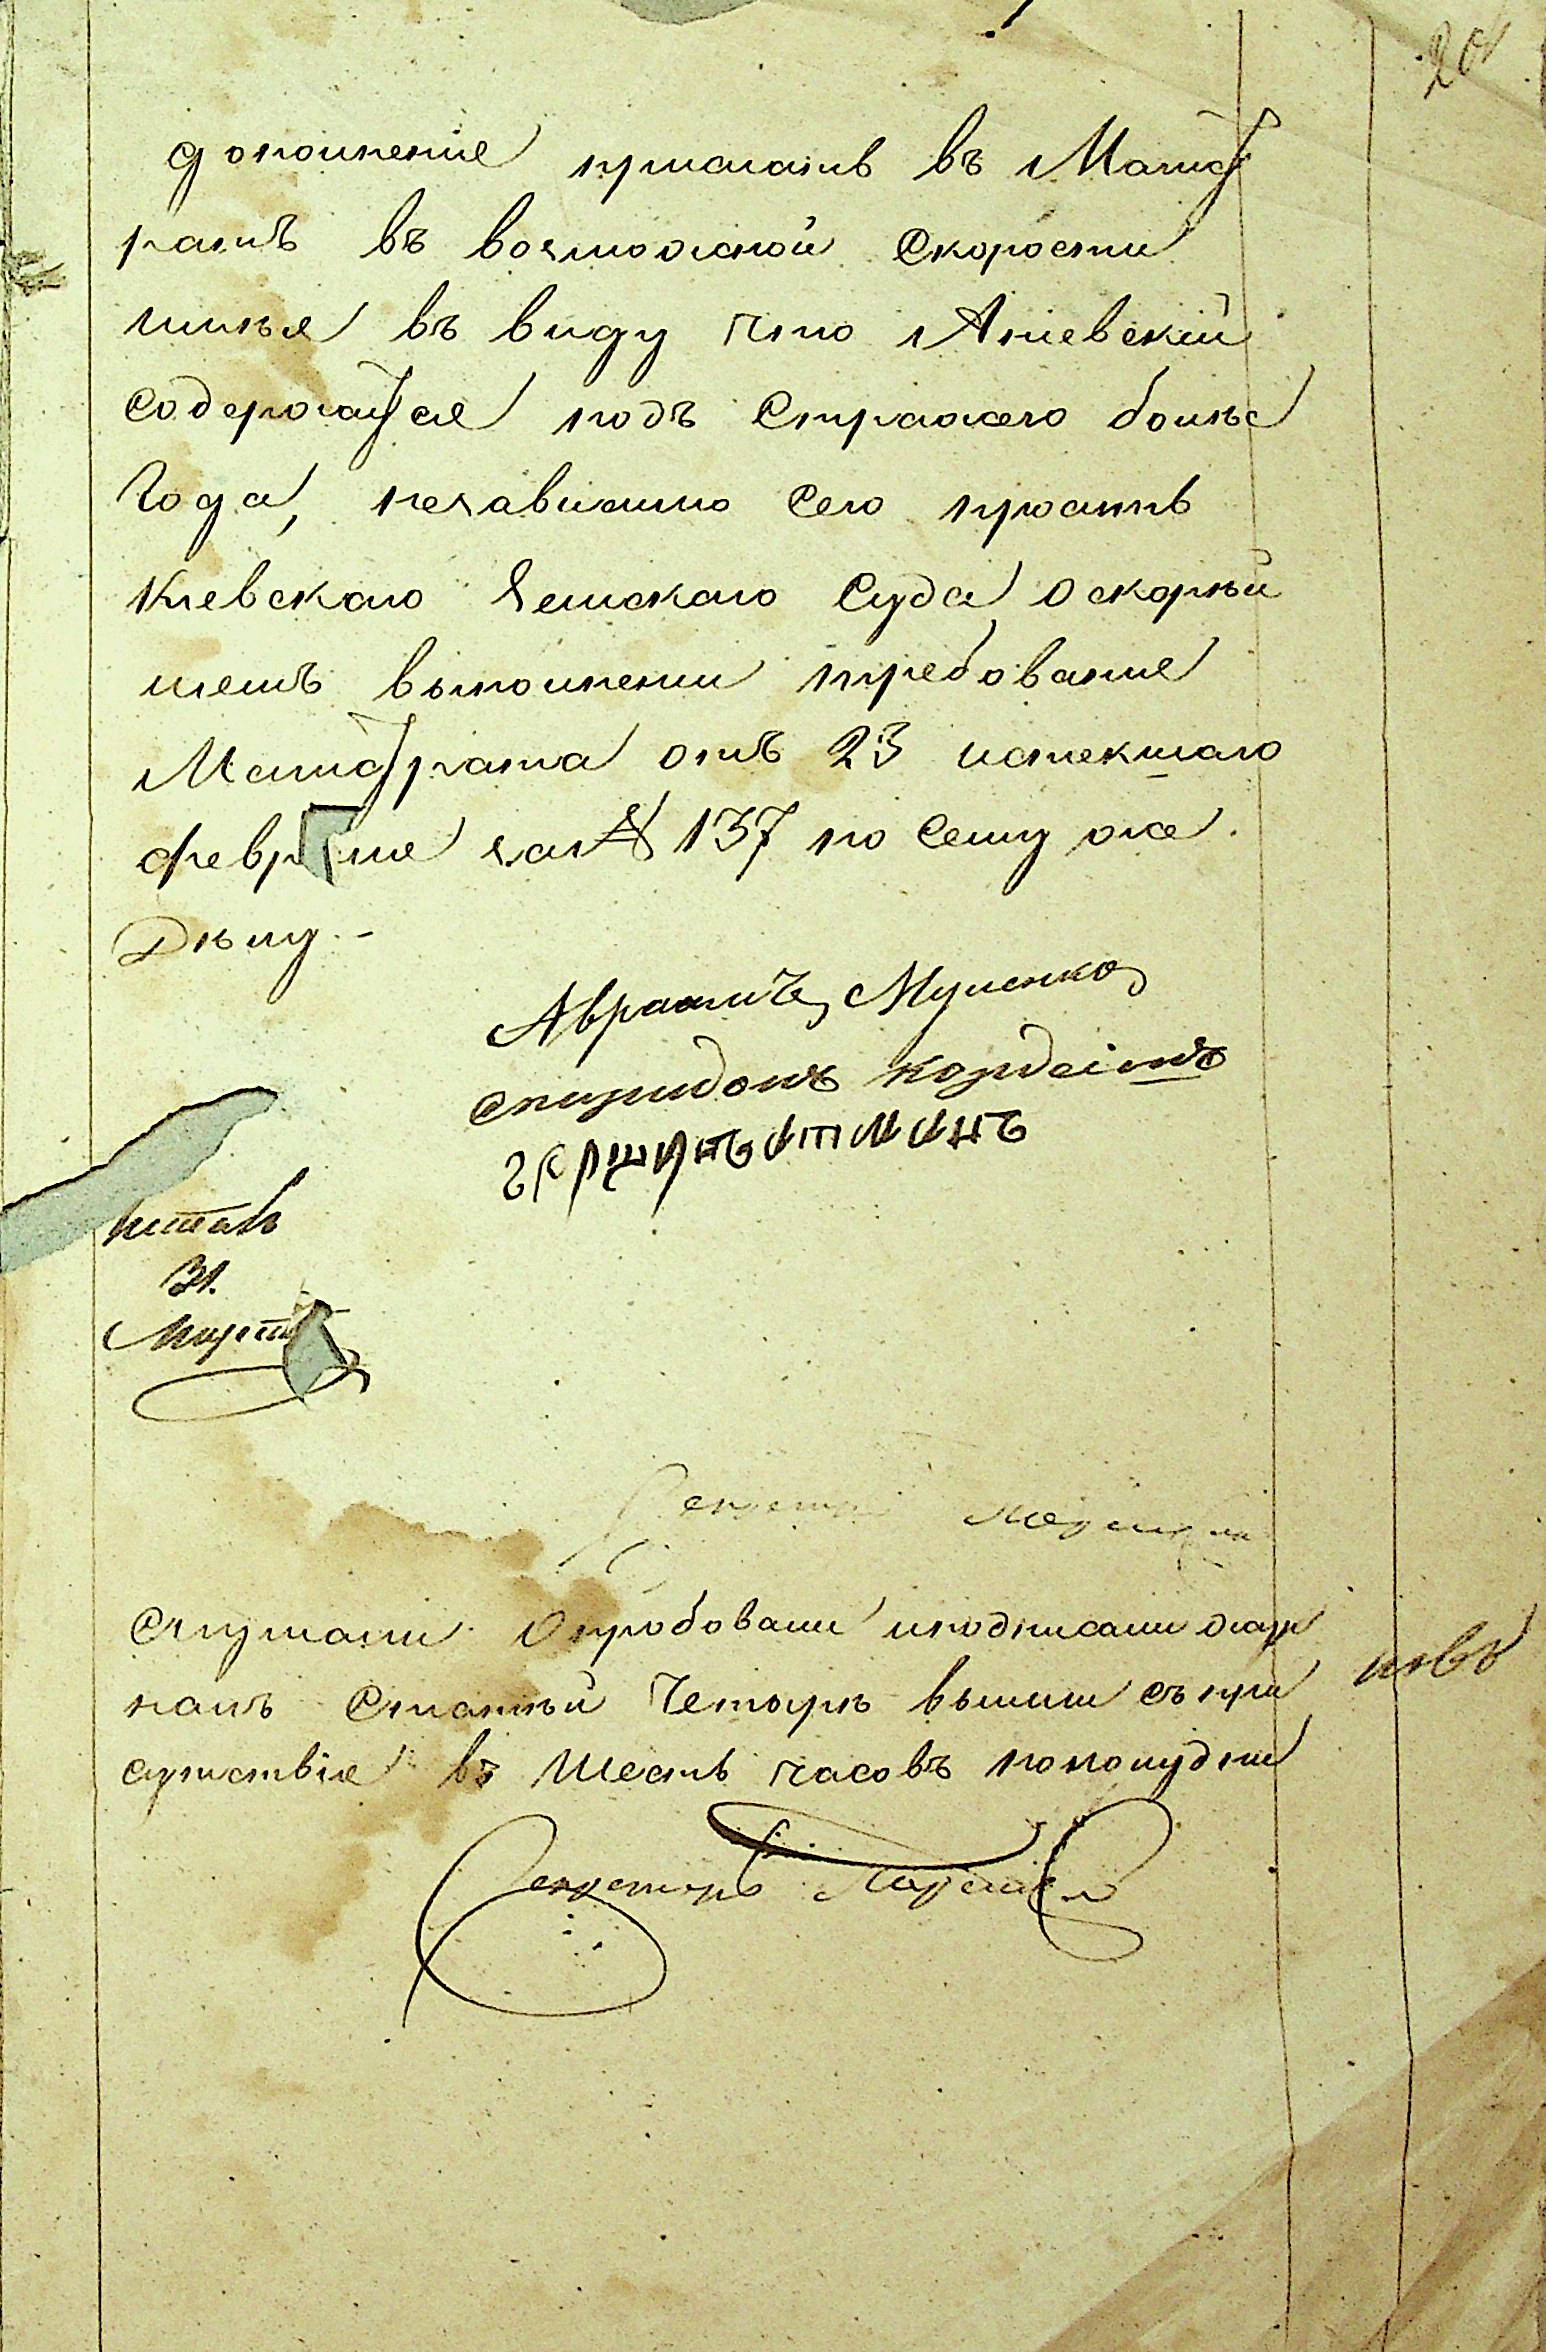 201
дополненіе прислать въ Магист
ратъ въ возможной скорости
имѣя въ виду что Аніевскій
содержится подъ стражею болѣе
года, независимо сего просить
Кіевскаго Земскаго Суда о скорѣй
шемъ выполненіи требованія
Магистрата отъ 23 истекшаго
февраля за № 137 по сему же
Дѣлу.-
Авраамъ
Спиридонъ
Читалъ
31.
Марта
Секретарь
Слушали опробовали и подписали жур
налъ статьи четыре вышли съ при
сутствія въ шесть часовъ пополудни
Секретарь